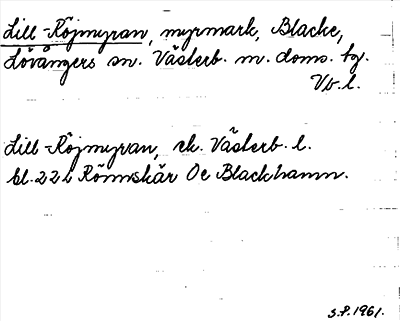 Lill-Röjmyran, myrmark, Blacke,
Lövångers sn. Västerb. m. doms. bg.
Vb. l.
Lill-Röjmyran, ek. Västerb. l.
bl. 22 Rönnskär Oc Blackhamn.
S.P. 1961.